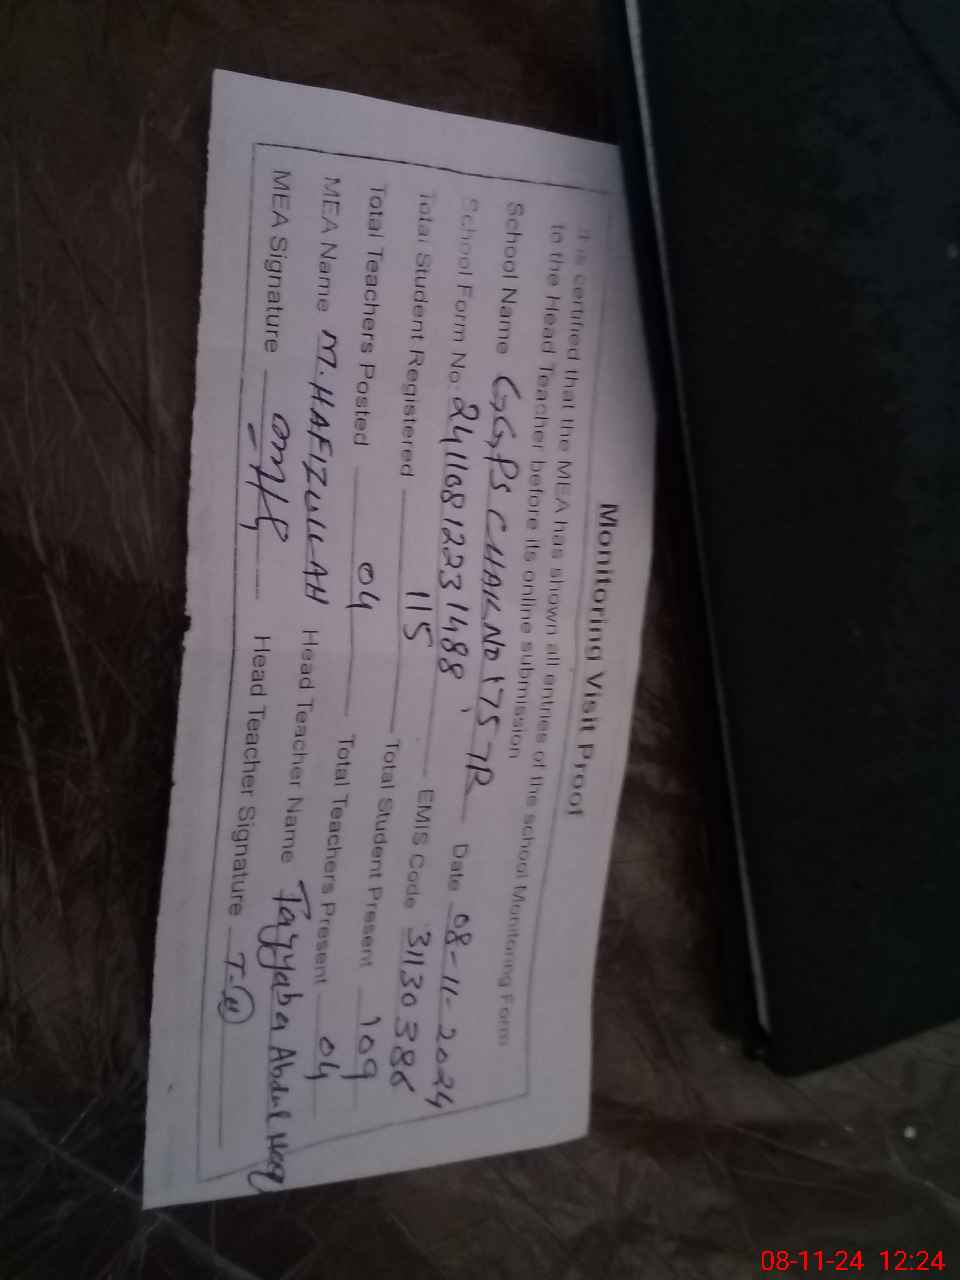 Monitoring Visit Proof
It is certified that the MEA has shown all entries of the school Monitoring Form
to the Head Teacher before its online submission
School Name GGPS CHAK NO 175 7R Date 08-11-2024
School Form No: 24110812231488 EMIS Code 31130386
Total Student Registered 115 Total Student Present 109
Total Teachers Posted 04 Total Teachers Present 04
MEA Name M.HAFIZULLAH Head Teacher Name Tayyaba Abdul Haq
MEA Signature Head Teacher Signature T-H
08-11-24 12:24